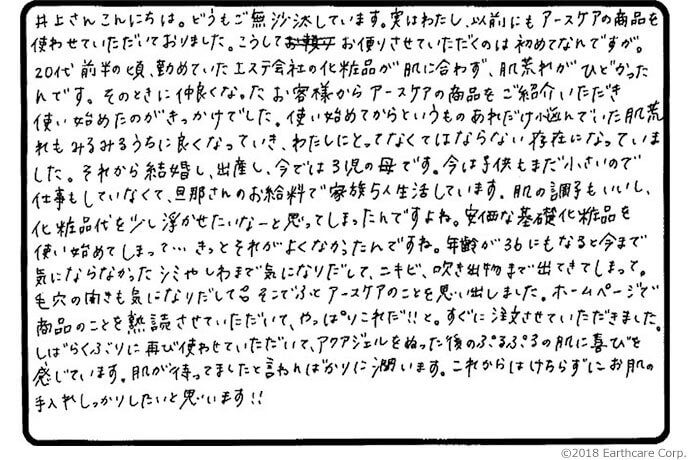 井上さんこんにちは。どうもご無沙汰しています。実はわたし、以前にもアースケアの商品を
使わせていただいておりました。こうしてお便りさせていただくのは初めてなんですが。
20代前半の頃、勤めていたエステ会社の化粧品が肌に合わず、肌荒れがひどかった
んです。そのときに仲良くなったお客様からアースケアの商品をご紹介いただき
使い始めたのがきっかけでした。使い始めてからというものあれだけ悩んでいた肌荒
れもみるみるうちに良くなっていき、わたしにとってなくてはならない存在になっていま
した。それから結婚し、出産し、今では3児の母です。今は子供もまだ小さいので
仕事もしていなくて、旦那さんのお給料で家族5人生活しています。肌の調子もいいし、
化粧品代を少し浮かせたいなーと思ってしまったんですよね。安価な基礎化粧品を
使い始めてしまって…きっとそれがよくなかったんですね。年齢が36にもなると今まで
気にならなかったシミやしわまで気になりだして、ニキビ、吹き出物まで出てきてしまって。
毛穴の開きも気になりだして。そこでふとアースケアのことを思い出しました。ホームページで
商品のことを熟読させていただいて、やっぱりこれだ!!と。すぐに注文させていただきました。
しばらくぶりに再び使わせていただいて、アクアジェルをぬった後のぷるぷるの肌に喜びを
感じています。肌が待ってましたと言わんばかりに潤います。これからはけちらずにお肌の
手入れしっかりしたいと思います!!
©2018 Earthcare Corp.